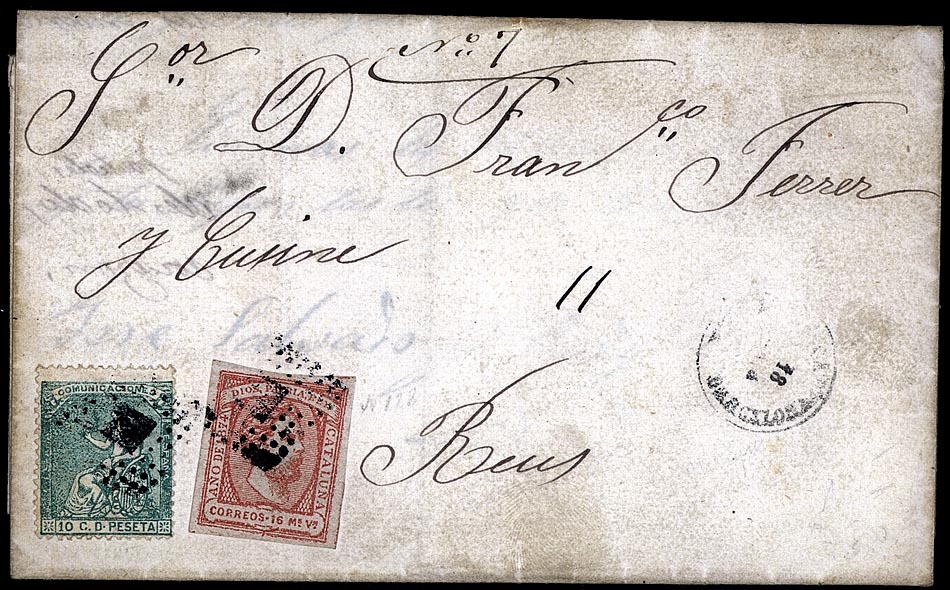 No. 7
Sor D. Franco Ferrer
y Cusine
11
Reus
COMUNICACIONES
10 C. D. PESETA
DIOS PATRIA REY
AÑO DE 1874
CATALUÑA
CORREOS-16 Ms Vn
18
BARCELONA
Jose Salvado